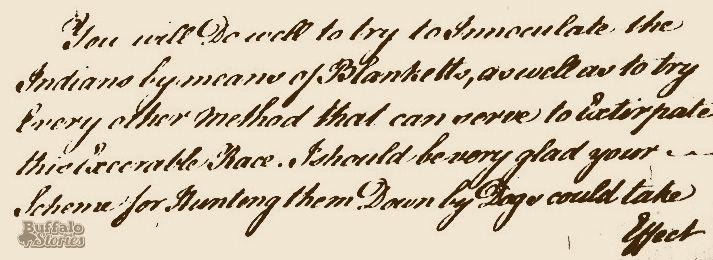 You will Do well to try to Innoculate the
Indians by means of Blanketts, as well as to try
Every other Method that can serve to Extirpate
this Execrable Race. I should be very glad your
Scheme for Hunting them Down by Dogs could take
Effect
Buffalo
Stories